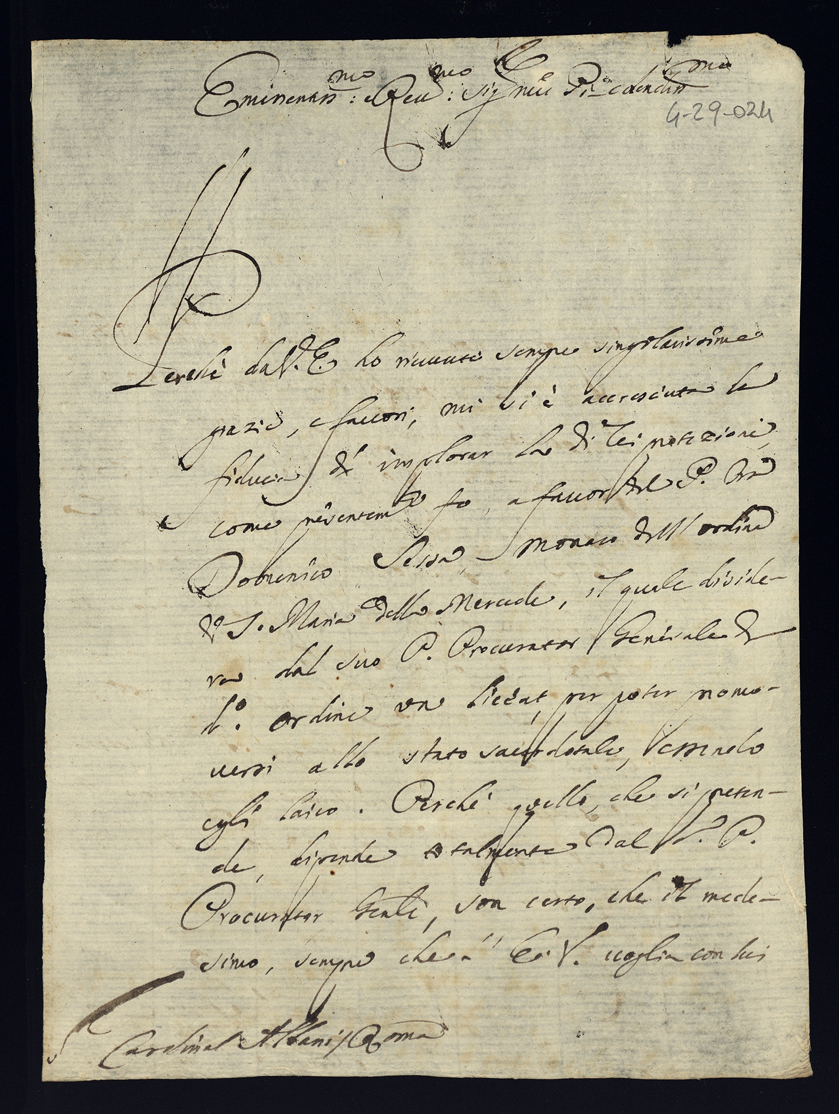 Eminentis:mo e Rev:mo Sig.re mio P.ne
4-29-024
Perchè da V. E. ho riceuute sempre singolarissime
grazie, e fauori, mi si è accresciuta la
fiducia di implorar la di Lei protezione,
come presentem.te fo, a fauor del P. Fra
Domenico Sessa, monaco dell'ordine
di S. Maria della Mercede, il quale desidera-
va dal suo P. Procurator Generale di
d.o ordine un liceat per poter promo-
uersi allo stato sacerdotale, essendo
egli laico. Perchè quello, che si preten-
de, dipende totalmente dal P.
Procurator Gen.le, son certo, che il mede-
simo, sempre che l' E. V. uoglia con lui
Cardinal Albani / Roma